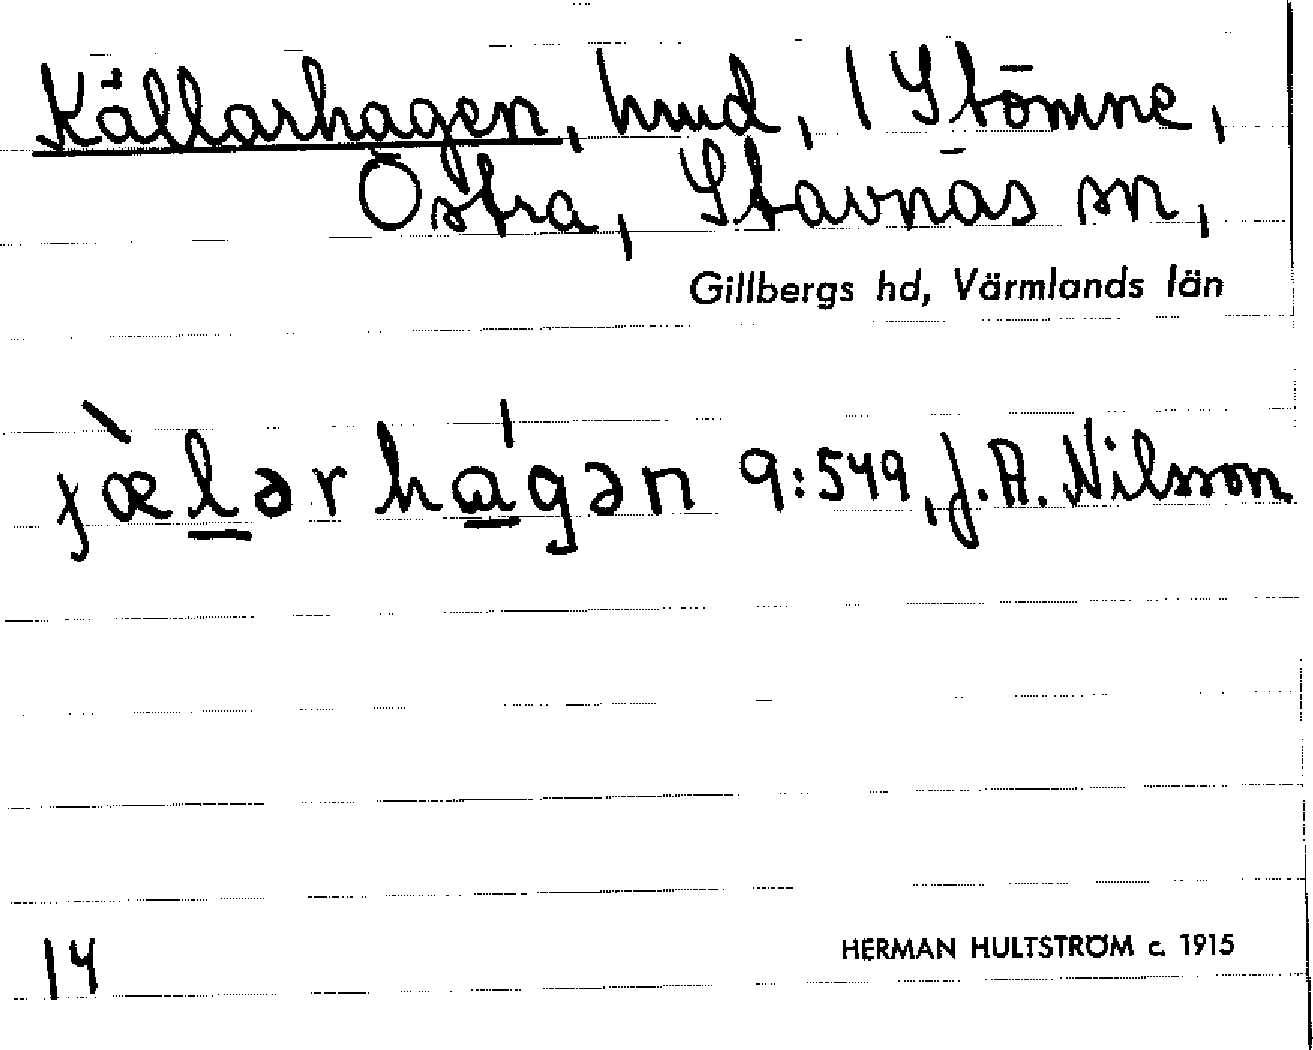 Källarhagen, hmd, 1 Stömne,
Östra, Stavnäs sn,
Gillbergs hd, Värmlands län
jæ̀lərhágən 9:549, J. A. Nilsson
14
HERMAN HULTSTRÖM c. 1915